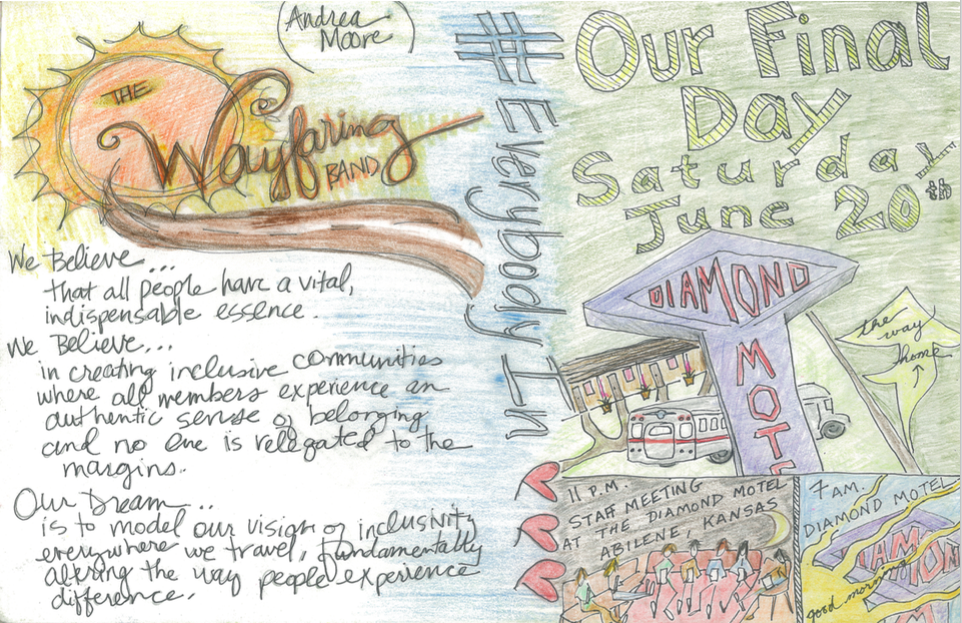 (Andrea
Moore)
THE
Wayfaring
BAND
We Believe...
that all people have a vital,
indispensable essence.
We Believe...
in creating inclusive communities
where all members experience an
authentic sense of belonging
and no one is relegated to the
margins.
Our Dream...
is to model our vision of inclusivity
everywhere we travel, fundamentally
altering the way people experience
difference.
#EverybodyIn
Our Final
Day
Saturday
June 20th
DIAMOND
MOTE
the way
home
11 P.M.
STAFF MEETING
AT THE DIAMOND MOTEL
ABILENE, KANSAS
7 AM.
DIAMOND MOTEL
IAMON
good morning
M